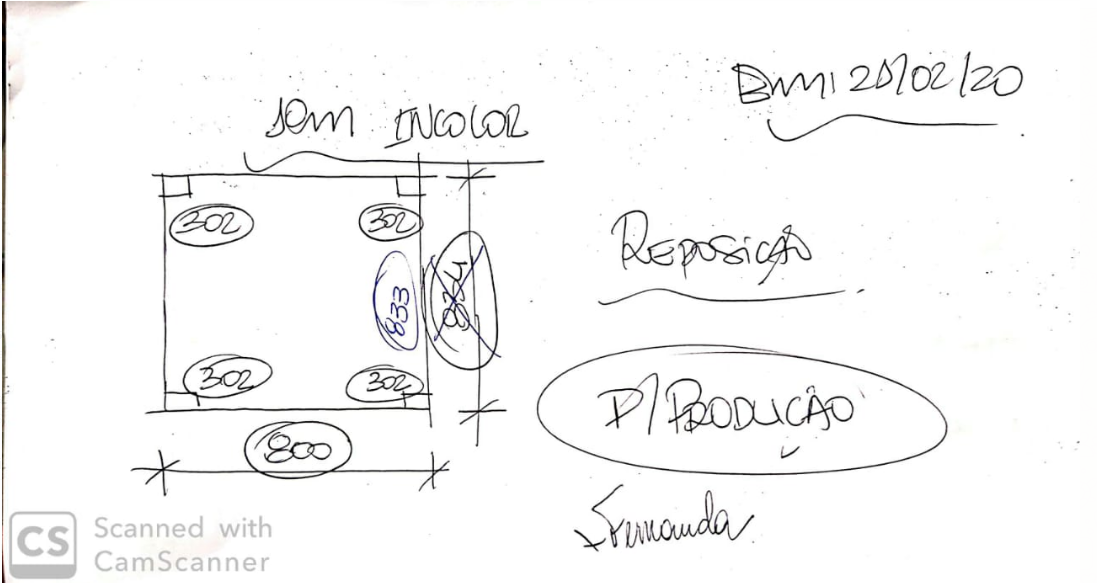 10mm INCOLOR
302
302
833
834
302
302
800
25/02/20
REPOSIÇÃO
P/ PRODUÇÃO
Fernanda
CS Scanned with
CamScanner